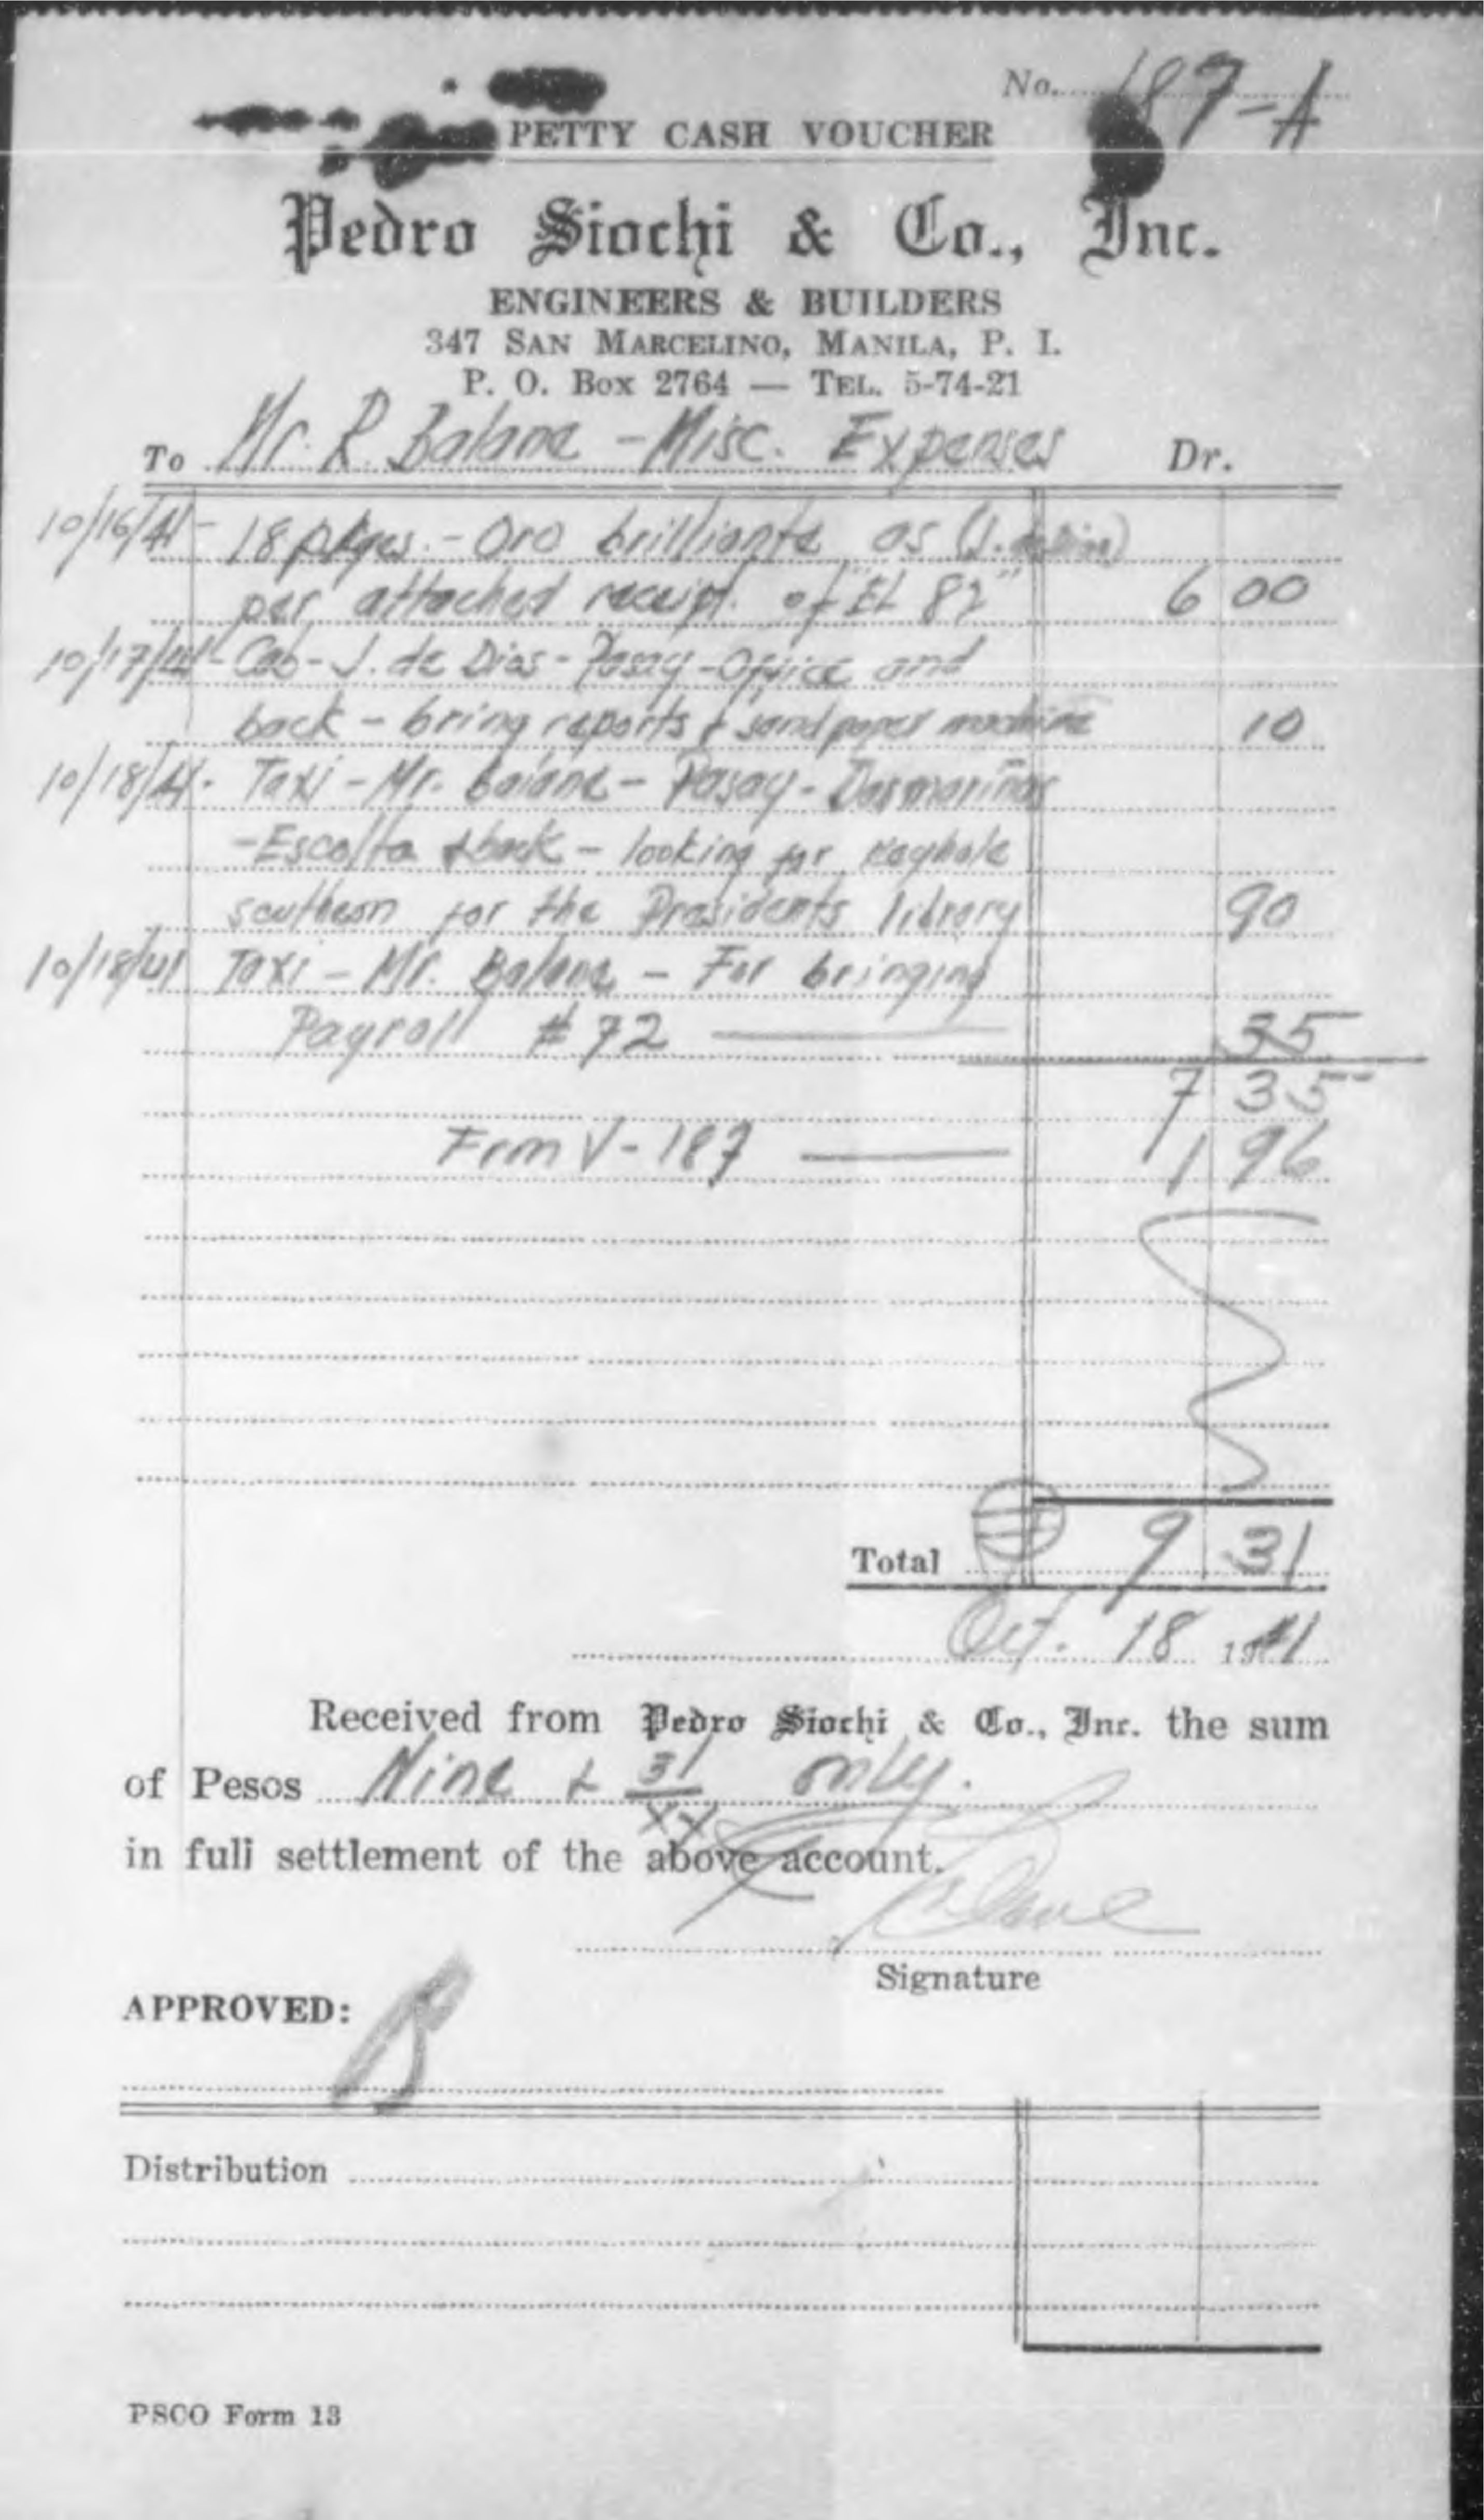 No. 187-A
PETTY CASH VOUCHER
Pedro Siochi & Co., Inc.
ENGINEERS & BUILDERS
347 SAN MARCELINO, MANILA, P. I.
P. O. Box 2764 — TEL. 5-74-21
To Mr. R. Balane - Misc. Expenses Dr.
10/16/41 - 18 pkges. - Oro brilliante as (J.
per attached receipt of "EL 82" 6 00
10/17/41 - Cab - J. de Dios - Pasay - Office and
back - bring reports & sand paper machine 10
10/18/41 - Taxi - Mr. Balane - Pasay - Dasmariñas
- Escolta & back - looking for keyhole
scutheon for the Presidents library 90
10/18/41 Taxi - Mr. Balane - For bringing
Payroll # 72 — 35
7 35
From V - 187 — 1 96
Total ₱ 9 31
Oct. 18 1941
Received from Pedro Siochi & Co., Inc. the sum
of Pesos Nine & 31/xx only.
in full settlement of the above account.
Balane
Signature
APPROVED:
B
Distribution
PSCO Form 13